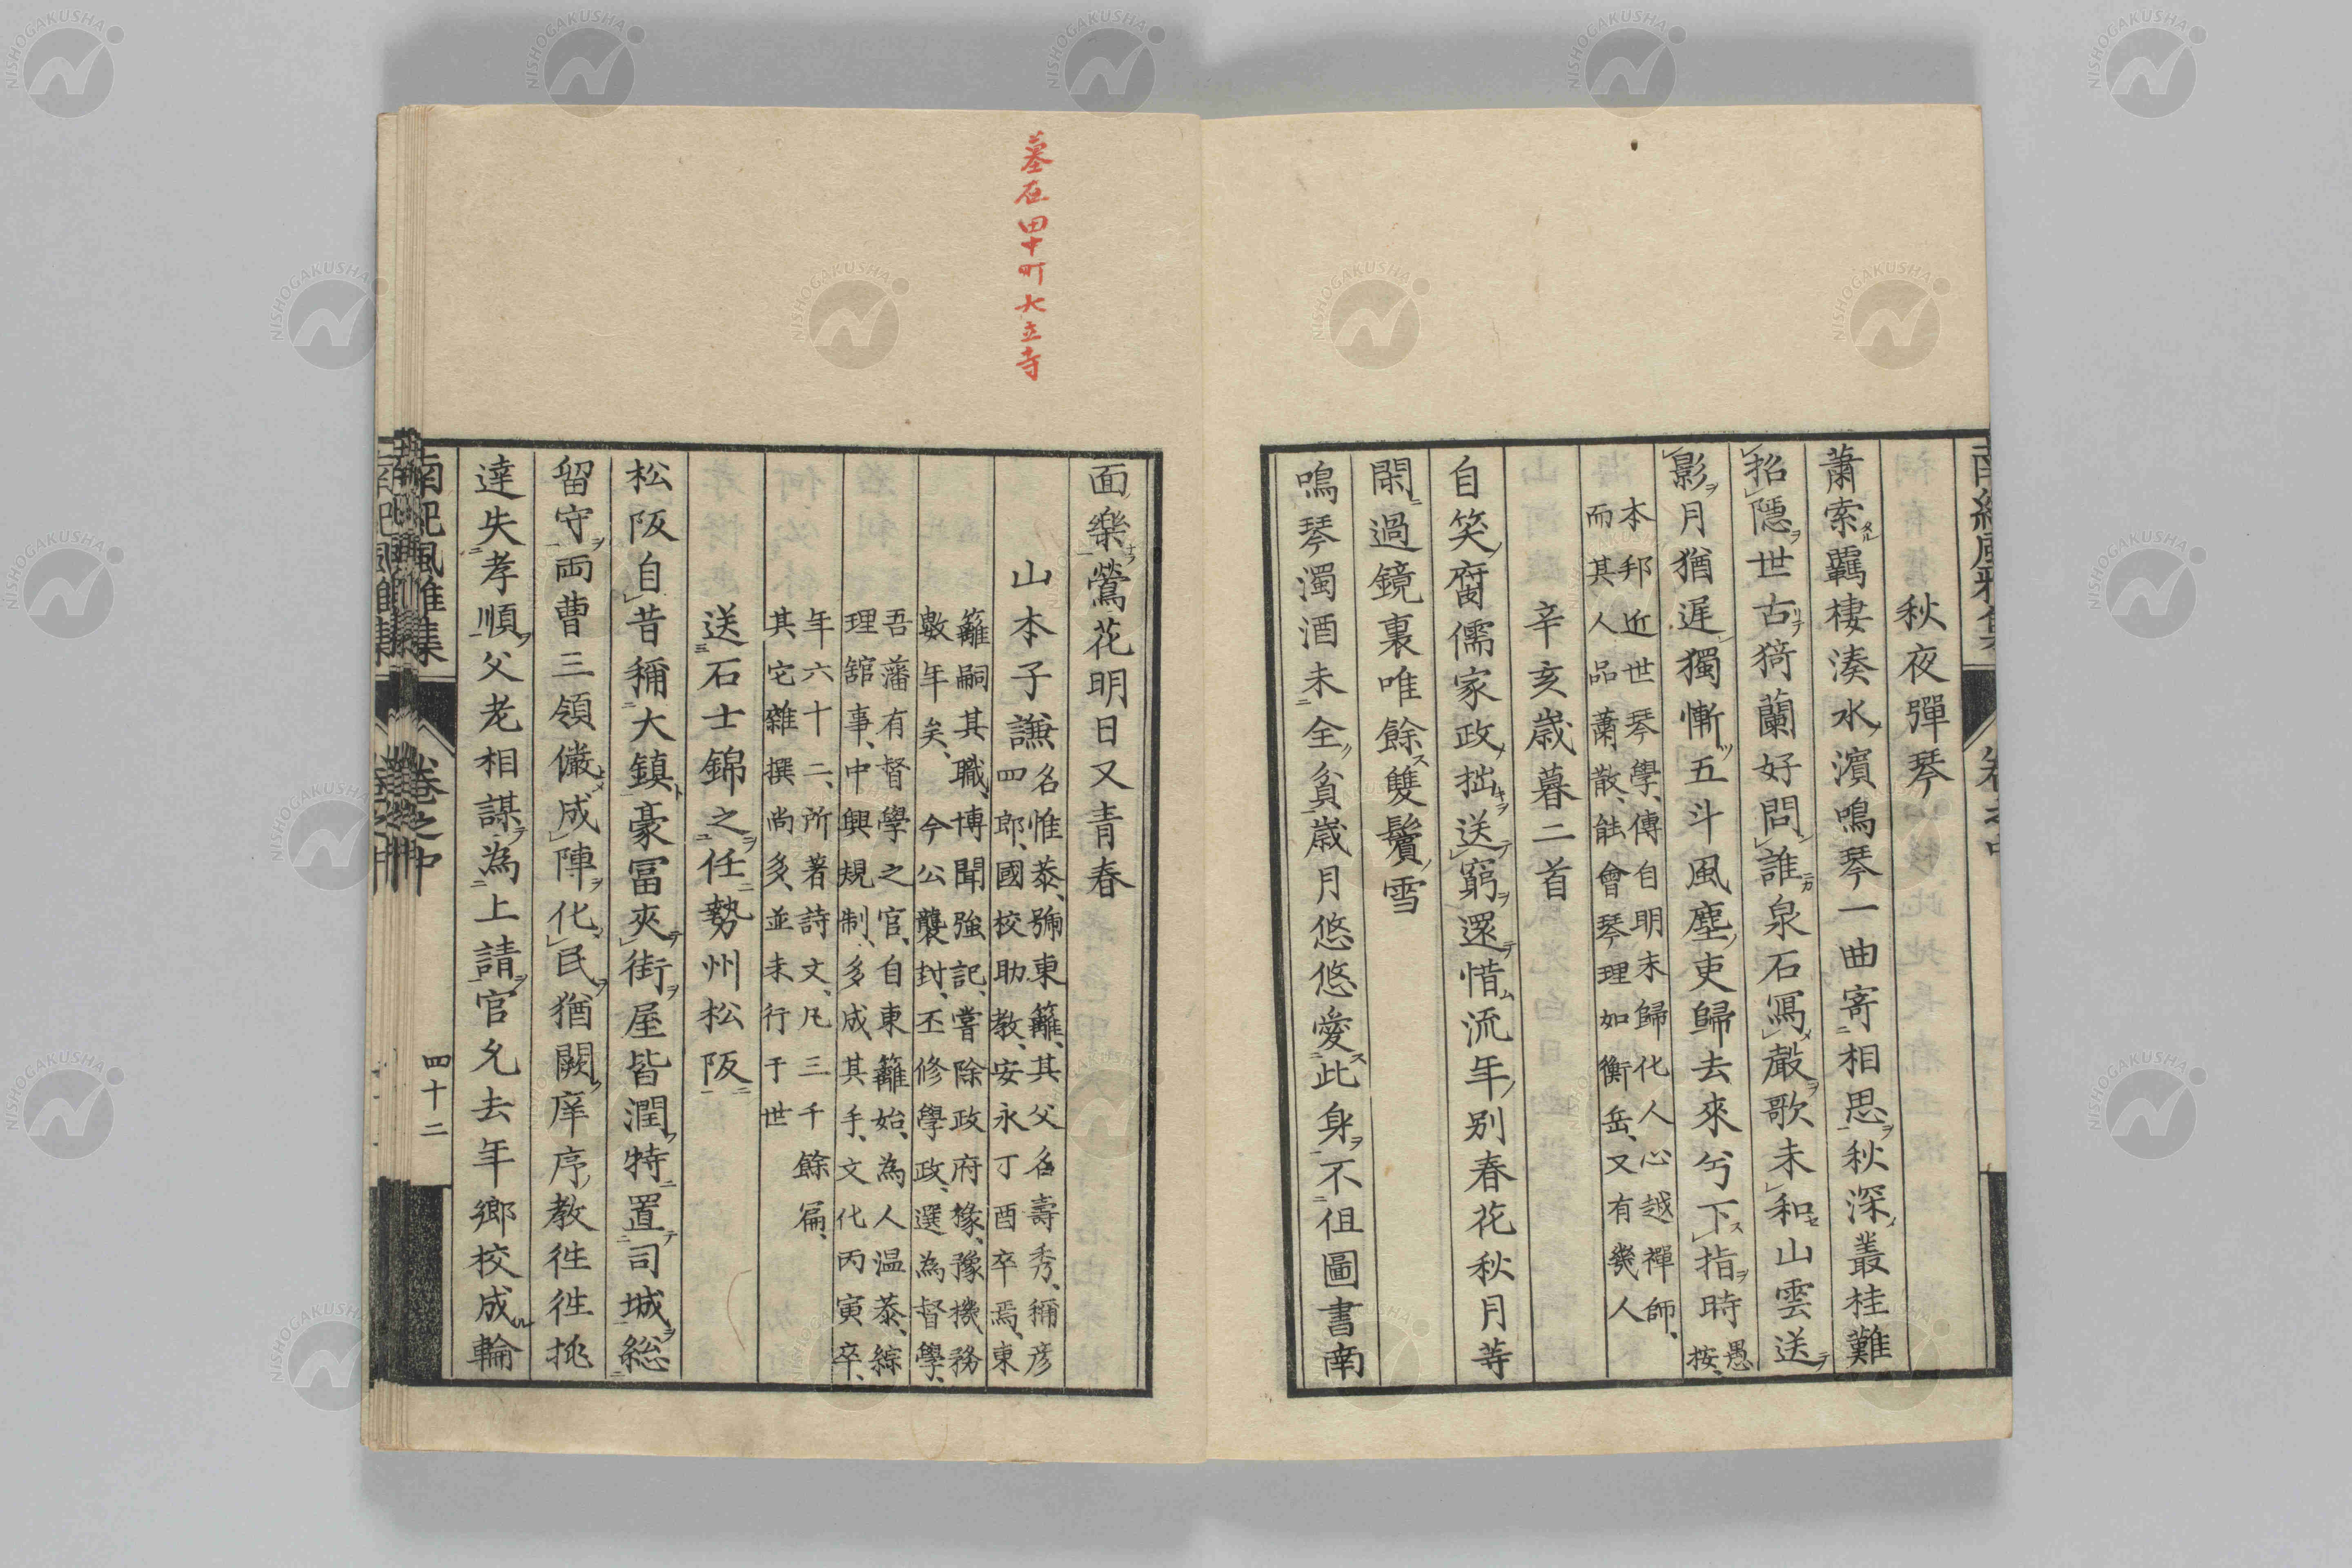 秋夜彈琴
蕭索羈棲湊水濱鳴琴一曲寄相思秋深叢桂難
招隱世古猗蘭好問誰泉石寫聲歌未和山雲送
影月猶遲獨慚五斗風塵吏歸去來兮下指時愚按
本邦近世琴學、傳自明末歸化人心越禪師、
而其人品蕭散、能會琴理如衡岳、又有幾人
辛亥歲暮二首
自笑腐儒家政拙送窮還惜流年別春花秋月等
閑過鏡裏唯餘雙鬢雪
鳴琴濁酒未全貧歲月悠悠愛此身不徂圖書南
墓在田中町大立寺
面樂鶯花明日又青春
山本子謙
名惟恭、號東籬、其父名壽秀、稱彥
四郎、國校助教、安永丁酉卒焉、東
籬嗣其職、博聞強記、嘗除政府掾、豫機務
數年矣、今公襲封、丕修學政、選為督學、
吾藩有督學之官、自東籬始、為人温恭、綜
理舘事、中興規制、多成其手、文化丙寅卒、
年六十二、所著詩文、凡三千餘扁、
其它雜撰尚多、並未行于世
送石士錦之任勢州松阪
松阪自昔稱大鎮豪冨夾街屋皆潤特置司城総
留守両曹三領儼成陣化民猶闕庠序教徃徃挑
達失孝順父老相謀為上請官允去年鄉校成輪
南紀風雅集
卷之中
四十二